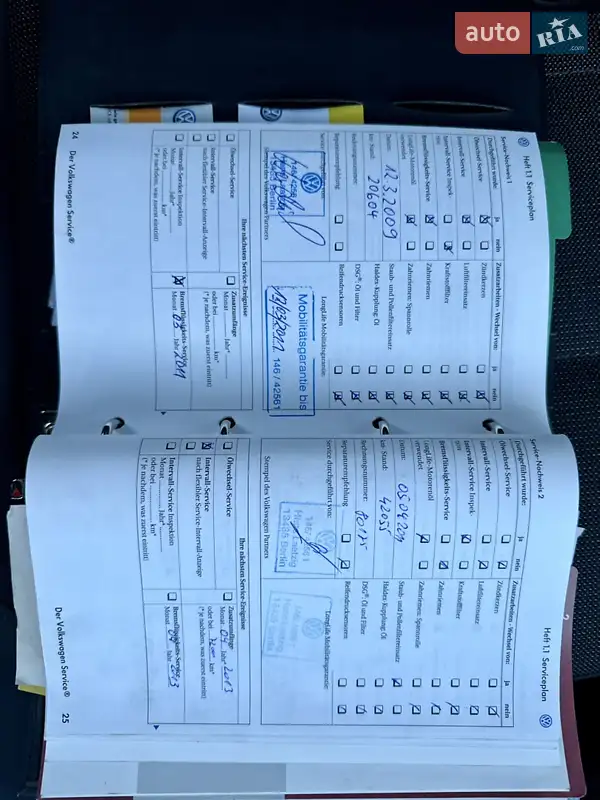 auto RIA .com
Heft 1.1 Serviceplan
Service-Nachweis 1
Durchgeführt wurde: ja nein
Ölwechsel-Service
Intervall-Service
Intervall-Service Inspektion
Bremsflüssigkeits-Service
LongLife-Motorenöl verwendet
Datum: 12.3.2009
km-Stand: 20604
Rechnungsnummer:
Reparaturempfehlung
Service durchgeführt von:
Stempel des Volkswagen Partners
Zusatzarbeiten - Wechsel von: ja nein
Zündkerzen
Luftfiltereinsatz
Kraftstofffilter
Zahnriemen
Zahnriemen: Spannrolle
Staub- und Pollenfiltereinsatz
Haldex-Kupplung: Öl
DSG®: Öl und Filter
Reifendrucksensoren
LongLife Mobilitätsgarantie:
Mobilitätsgarantie bis
12/03/2011 146 / 42561
Ihre nächsten Service-Ereignisse
Ölwechsel-Service
Intervall-Service
nach flexibler Service-Intervall-Anzeige
Intervall-Service Inspektion
Monat Jahr*
oder bei km*
(* je nachdem, was zuerst eintritt)
Zusatzumfänge
Monat Jahr*
oder bei km*
(* je nachdem, was zuerst eintritt)
Bremsflüssigkeits-Service
Monat 03 Jahr 2011
24 Der Volkswagen Service®
Heft 1.1 Serviceplan
Service-Nachweis 2
Durchgeführt wurde: ja nein
Ölwechsel-Service
Intervall-Service
Bremsflüssigkeits-Service
LongLife-Motorenöl verwendet
km-Stand: 42055
Rechnungsnummer: 80175
Reparaturempfehlung
Service durchgeführt von:
13465 Berlin
Stempel des Volkswagen Partners
Zusatzarbeiten - Wechsel von: ja nein
Zündkerzen
Luftfiltereinsatz
Kraftstofffilter
Zahnriemen
Zahnriemen: Spannrolle
Staub- und Pollenfiltereinsatz
Haldex-Kupplung: Öl
DSG®: Öl und Filter
Reifendrucksensoren
LongLife Mobilitätsgarantie:
Ihre nächsten Service-Ereignisse
Ölwechsel-Service
Intervall-Service
nach flexibler Service-Intervall-Anzeige
Intervall-Service Inspektion
Monat Jahr*
oder bei km*
(* je nachdem, was zuerst eintritt)
Zusatzumfänge
Monat 04 Jahr* 2013
oder bei km*
(* je nachdem, was zuerst eintritt)
Bremsflüssigkeits-Service
Monat 04 Jahr 2013
Der Volkswagen Service® 25